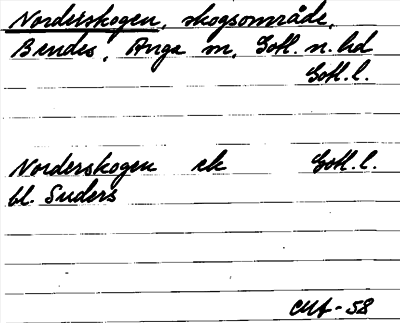 Norderskogen, skogsområde,
Bendes, Anga sn, Gotl. n. hd
Gotl. l.
Norderskogen ek Gotl. l.
bl. Suders
-58